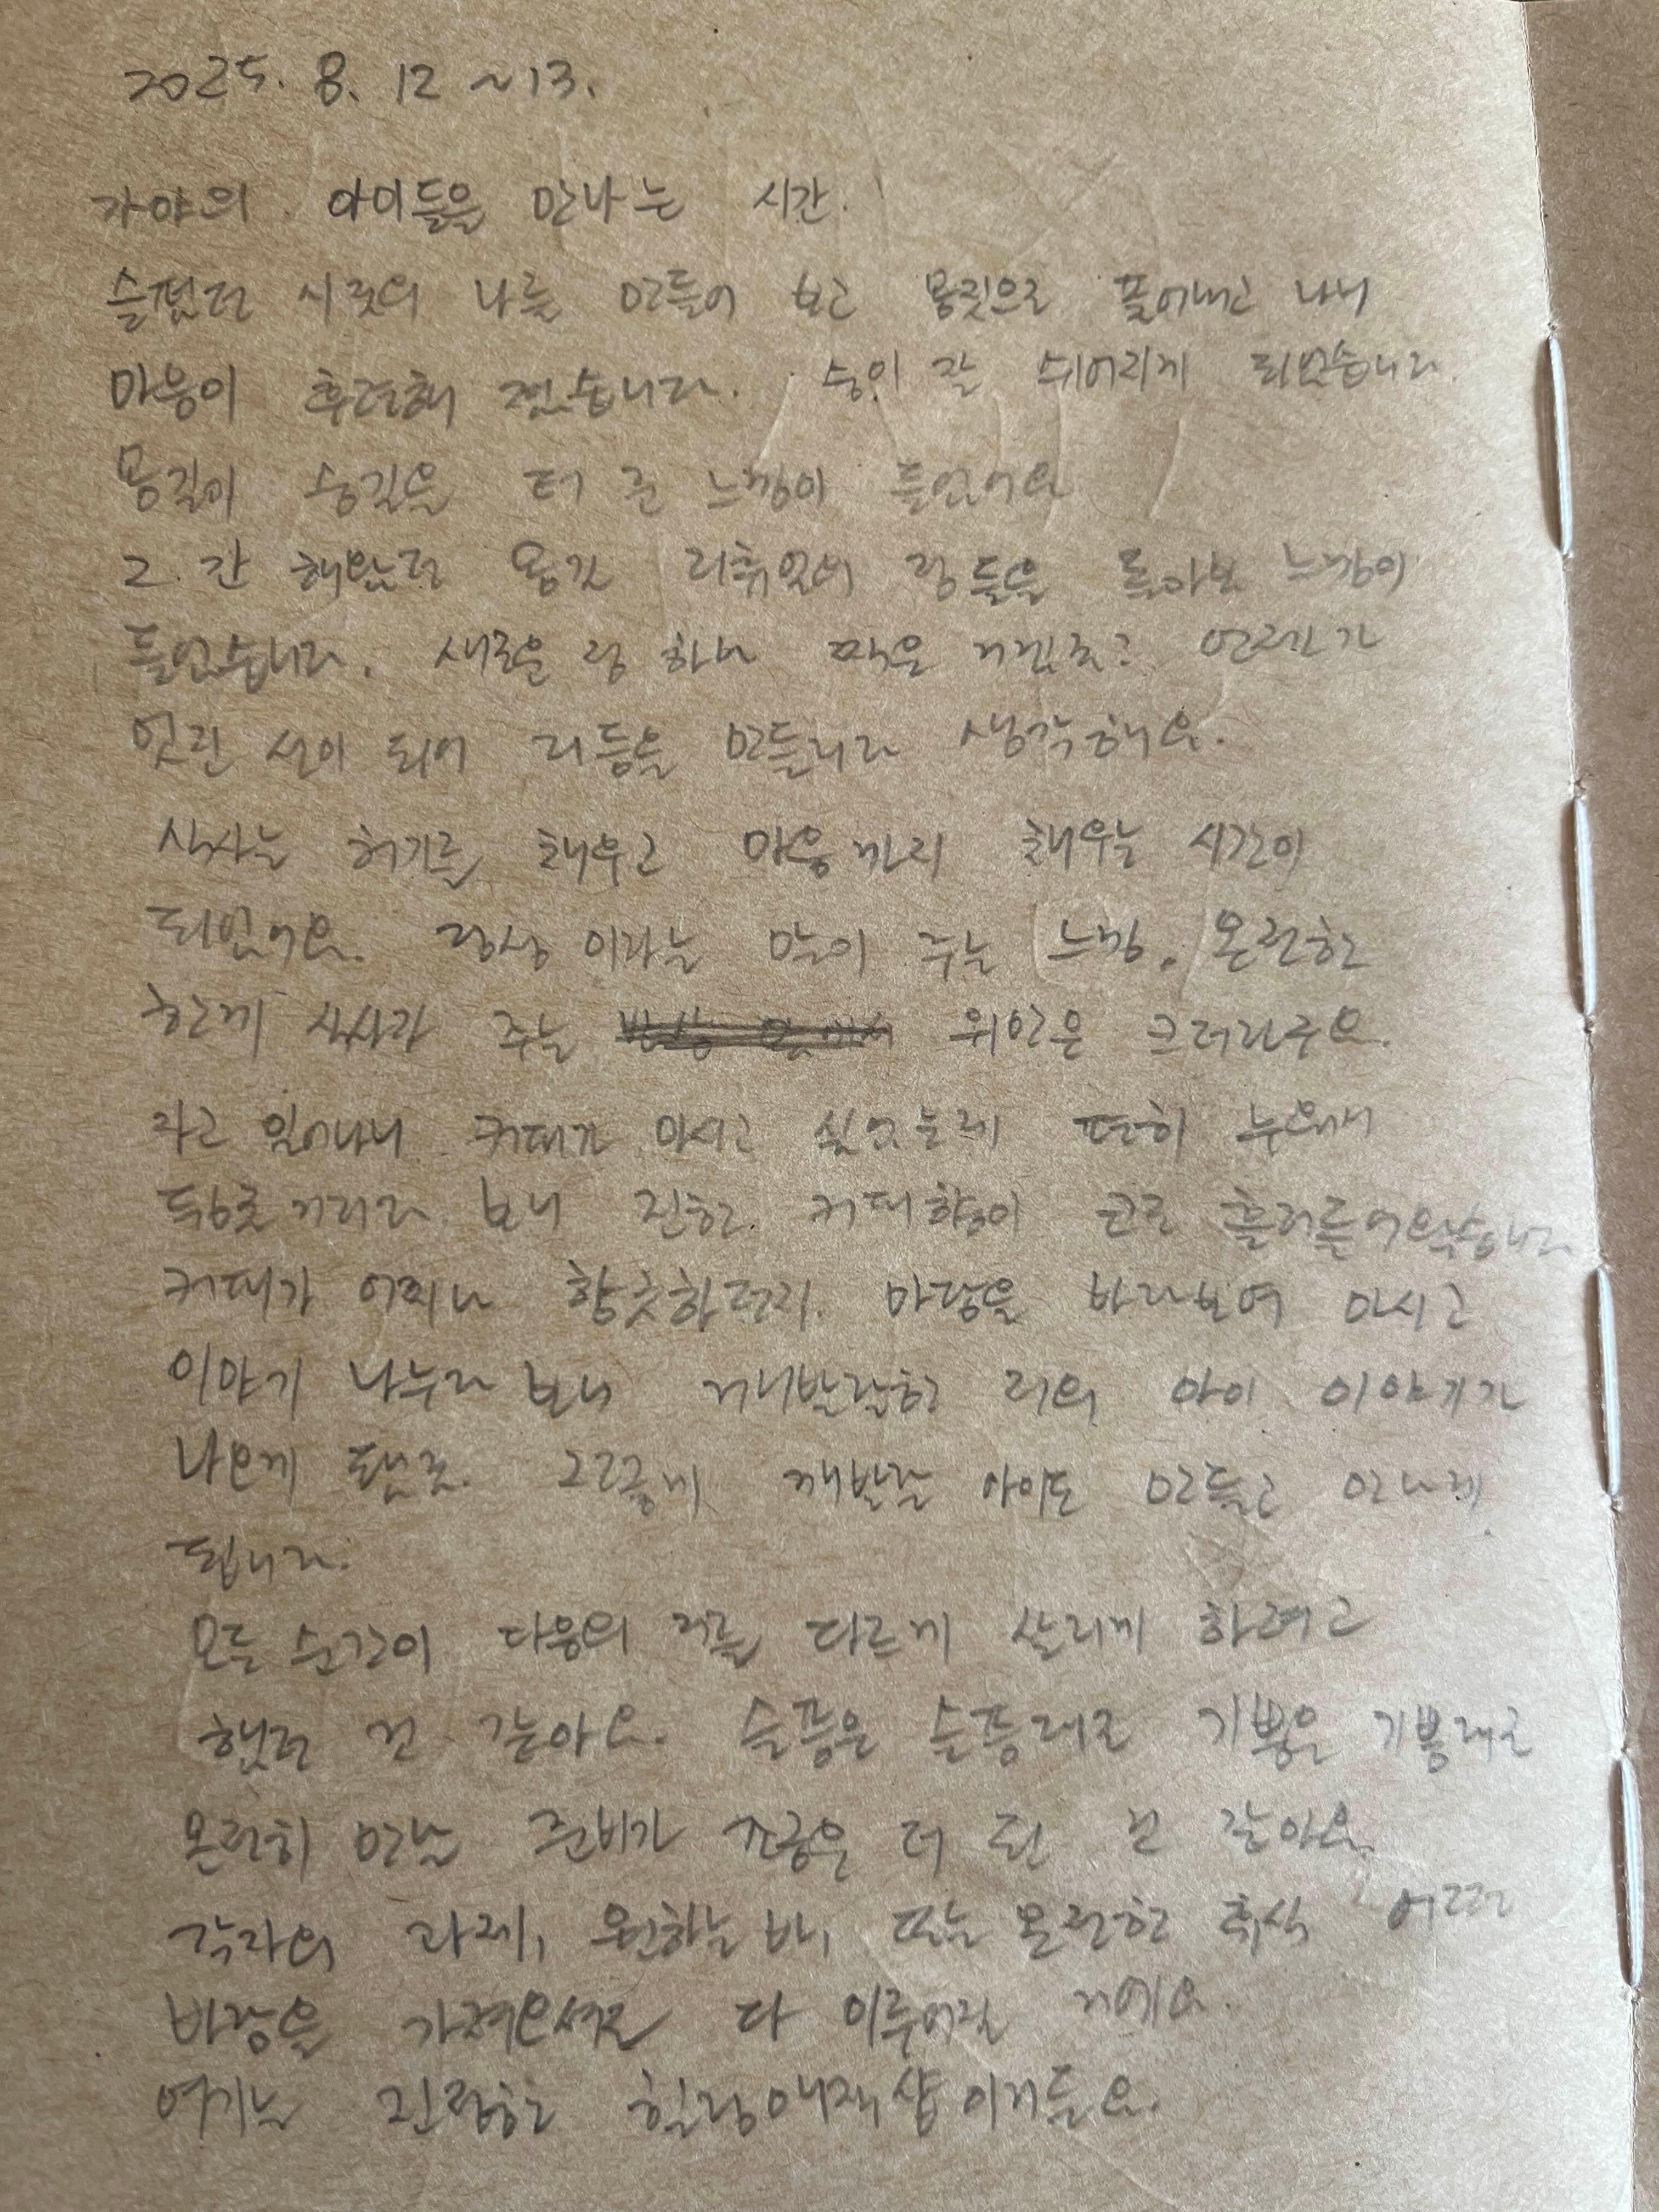 2025. 8. 12 ~ 13.
자아의 아이들을 만나는 시간.
슬펐던 시절의 나를 만들어 보고 몸짓으로 풀어내고 나니
마음이 후련해 졌습니다. 숨이 잘 쉬어지게 되었습니다.
몸짓이 숨길을 터 준 느낌이 들었어요
그 간 해왔던 몸짓 리츄얼의 점들을 돌아보 느낌이
들었습니다. 새로운 점 하나 찍은 거겠죠? 언젠가
멋진 선이 되어 리듬을 만들리라 생각해요.
식사는 허기를 채우고 마음까지 채우는 시간이
되었어요. 정성이라는 말이 주는 느낌. 온전한
한끼 식사가 주는 위안은 크더라구요.
자고 일어나니 커피가 마시고 싶었는데 편히 누워서
뒤척거리다 보니 진한 커피향이 코로 흘러들어왔습니다
커피가 어찌나 향긋하던지. 마당을 바라보며 마시고
이야기 나누다 보니 개발랄한 저의 아이 이야기가
나오게 됐죠. 그렇게 깨발랄 아이도 만들고 만나게
됩니다.
모든 순간이 다음의 저를 다르게 살리게 하려고
했던 것 같아요. 슬픔은 슬픔대로 기쁨은 기쁨대로
온전히 만날 준비가 조금은 더 된 것 같아요.
각자의 과제, 원하는 바, 또는 온전한 휴식 어떤
바람을 가져오셔도 다 이루어질 거에요.
여기는 진정한 힐링이거든요.